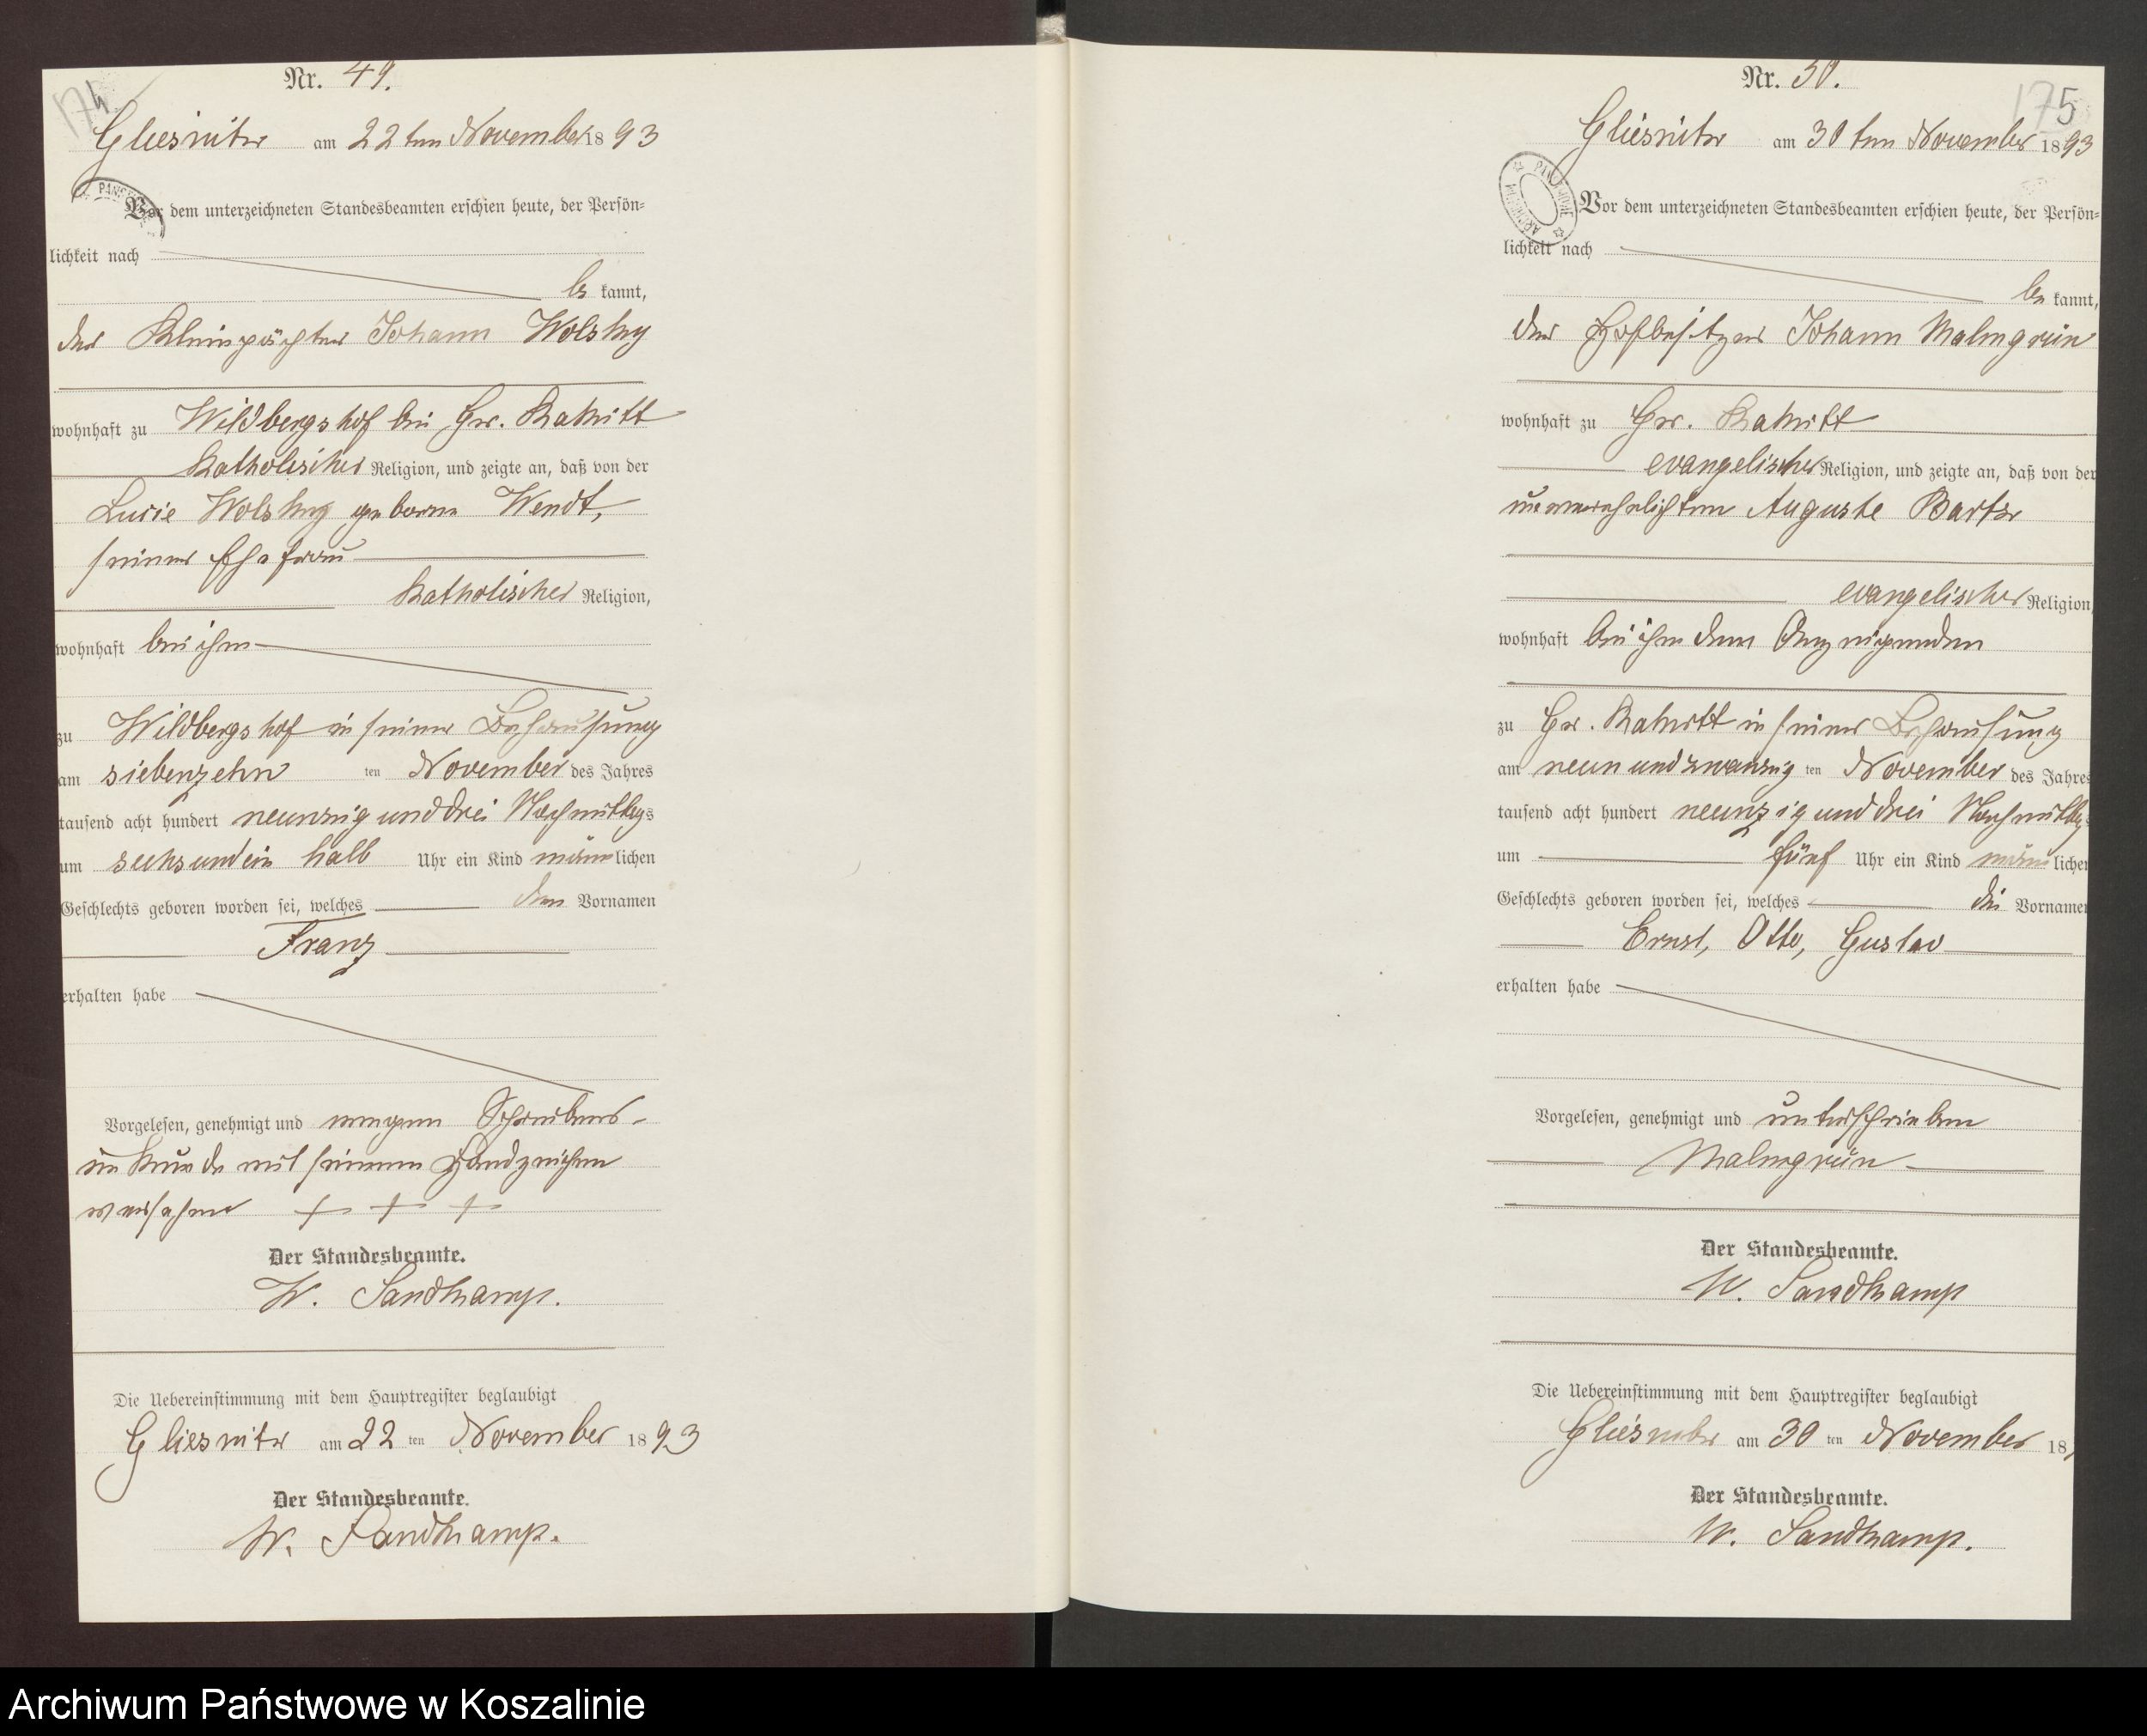 174
Nr. 49.
Gliesnitz am 22ten November 1893
Vor dem unterzeichneten Standesbeamten erschien heute, der Persön-
lichkeit nach
be kannt,
der Kleinpächter Johann Wolsky
wohnhaft zu Wildbergshof bei Gr. Rakitt
Katholischer Religion, und zeigte an, daß von der
Lucie Wolsky geborne Wendt,
seiner Ehefrau
Katholischer Religion,
wohnhaft bei ihm
zu Wildbergshof in seiner Behausung
am siebenzehn ten November des Jahres
tausend acht hundert neunzig und drei Nachmittags
um sechs und ein halb Uhr ein Kind männlichen
Geschlechts geboren worden sei, welches den Vornamen
Franz
erhalten habe
Vorgelesen, genehmigt und wegen Schreibens-
unkunde mit seinem Handzeichen
versehen + + +
Der Standesbeamte.
W. Sandkamp.
Die Uebereinstimmung mit dem Hauptregister beglaubigt
Gliesnitz am 22 ten November 1893
Der Standesbeamte.
W. Sandkamp.
175
Nr. 50.
Gliesnitz am 30ten November 1893
Vor dem unterzeichneten Standesbeamten erschien heute, der Persön-
lichkeit nach
be kannt,
der Hofbesitzer Johann Malmgrün
wohnhaft zu Gr. Rakitt
evangelischer Religion, und zeigte an, daß von der
unverehelichten Auguste Bartz
evangelischer Religion
wohnhaft bei ihm dem Anzeigenden
zu Gr. Rakitt in seiner Behausung
am neun und zwanzig ten November des Jahres
tausend acht hundert neunzig und drei Nachmittags
um fünf Uhr ein Kind männlichen
Geschlechts geboren worden sei, welches die Vornamen
Ernst, Otto, Gustav
erhalten habe
Vorgelesen, genehmigt und unterschrieben
Malmgrün
Der Standesbeamte.
W. Sandkamp
Die Uebereinstimmung mit dem Hauptregister beglaubigt
Gliesnitz am 30 ten November 18
Der Standesbeamte.
W. Sandkamp.
Archiwum Państwowe w Koszalinie